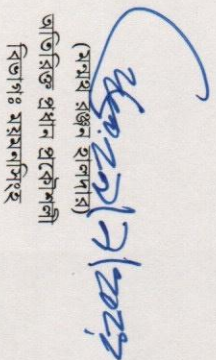 (মন্মথ রঞ্জন হালদার)
অতিরিক্ত প্রধান প্রকৌশলী
বিভাগঃ ময়মনসিংহ